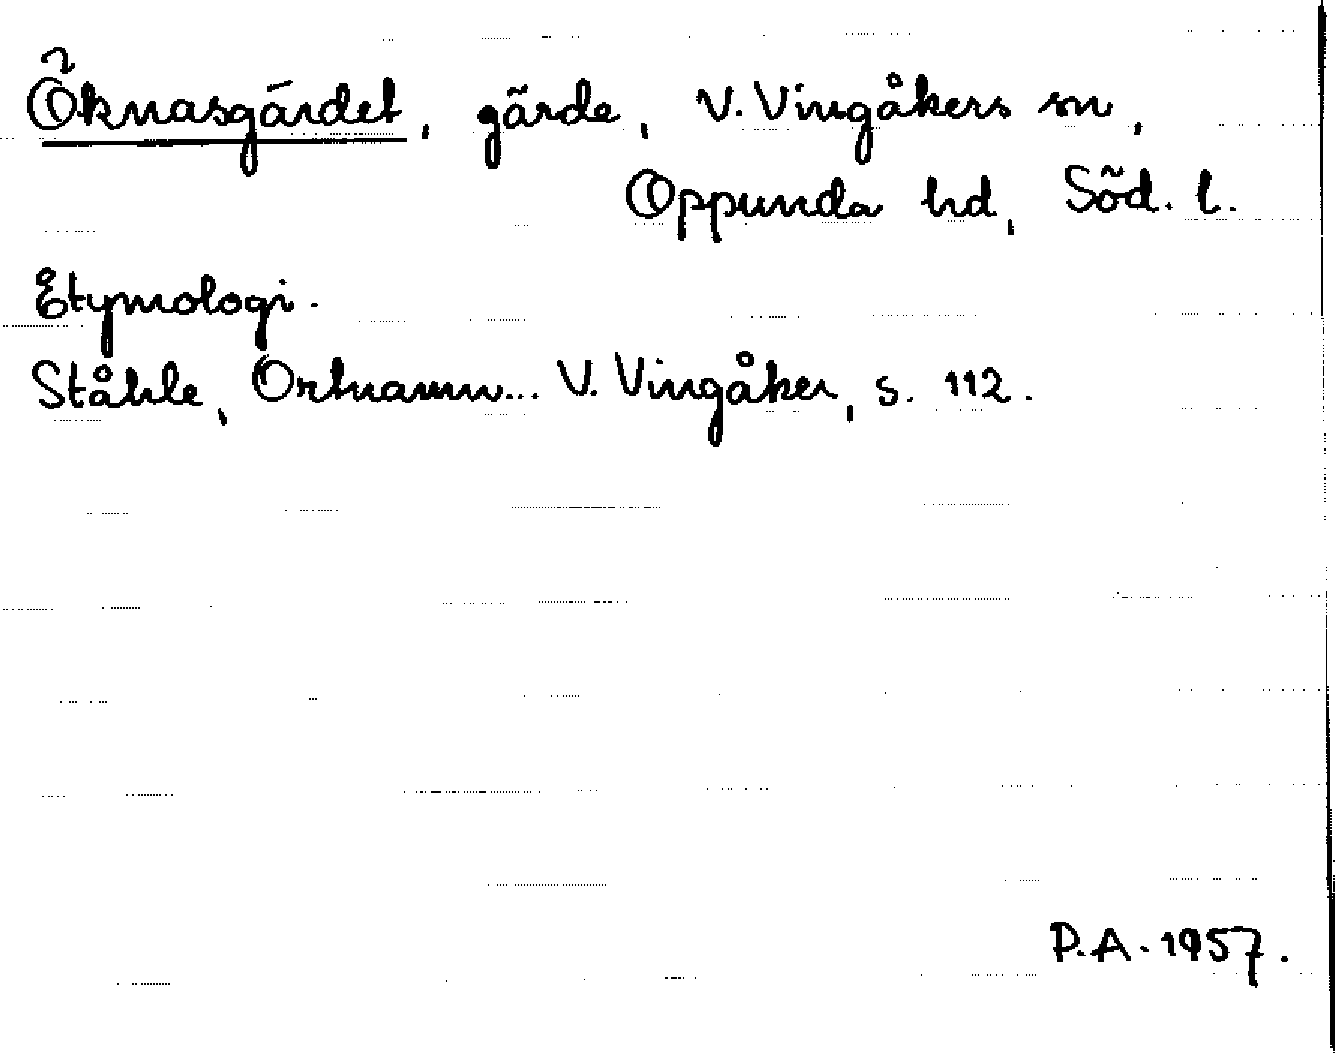 Öknasgärdet, gärde, V. Vingåkers sn,
Oppunda hd, Söd. l.
Etymologi.
Ståhle, Ortnamn... V. Vingåker, s. 112.
P.A. 1957.